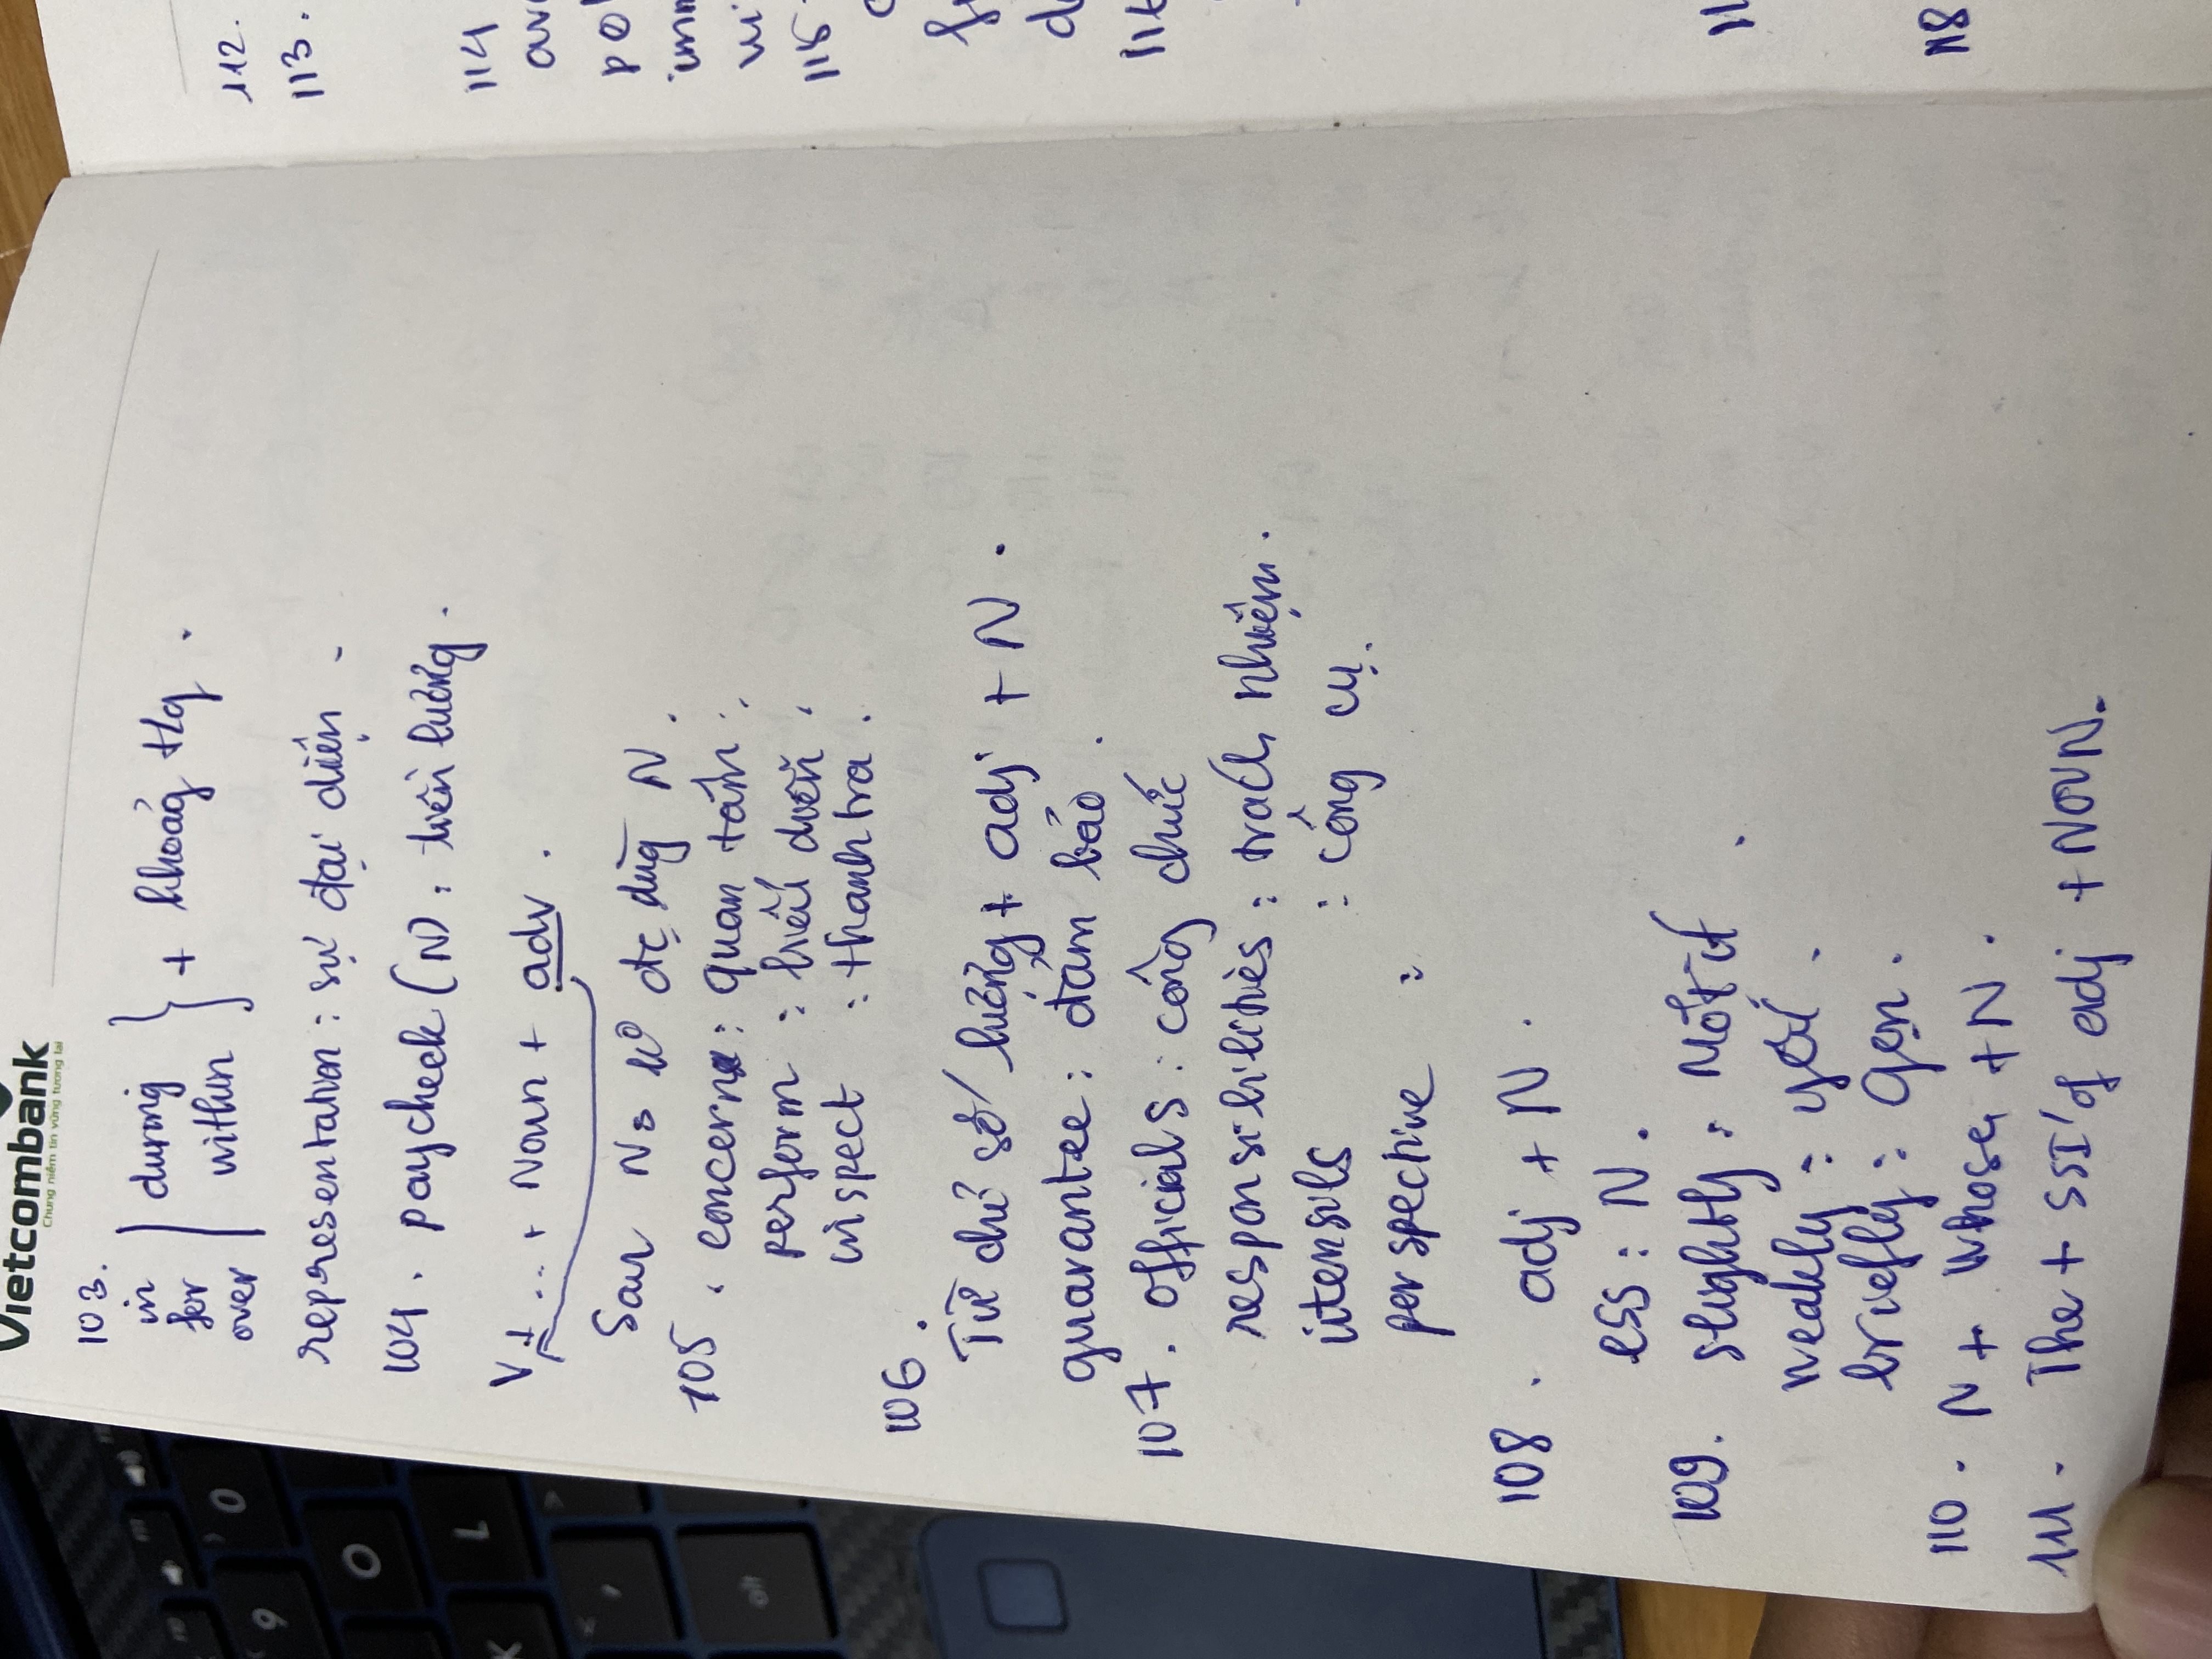 Vietcombank
Chung niềm tin vững tương lai
103.
in
for
over
during
within
+ khoảg tlg.
representation: sự đại diện
104. paycheck (N): tiền lương.
V + ... + Noun + adv.
Sau Ns k° đc dùg N.
105. concern: quan tâm.
perform: biểu diễn.
inspect: thanh tra.
106.
Từ chỉ số lượng + adj + N.
guarantee: đảm bảo.
107. officials: công chức
responsibilities: trách nhiệm.
utensils: công cụ.
perspective:
108. adj + N.
ess: N.
109. slightly: Một ít.
weakly: yếu.
briefly: gọn.
110. N + whose + N.
111. The + SSI' of adj + NOUN.
112.
113.
114
115
116
118